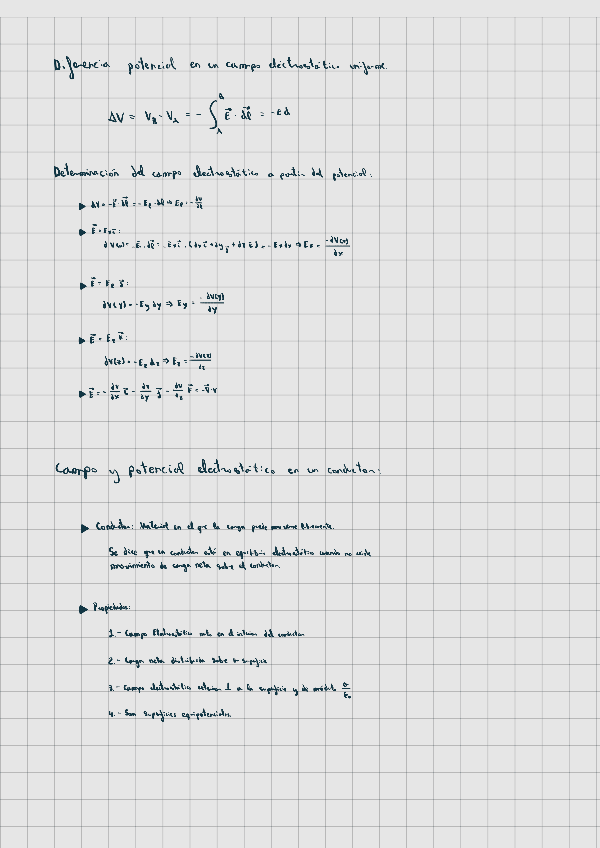 Diferencia potencial en un campo electrostático uniforme.
ΔV = V_B - V_A = - ∫_A^B E⃗ · dl⃗ = -Ed
Determinación del campo electrostático a partir del potencial:
▶ dV = -E⃗ · dl⃗ = -E_l · dl ⇒ E_l = - dV/dl
▶ E⃗ = E_x i⃗:
dV(x) = -E⃗ · dl⃗ = -E_x i⃗ · (dx i⃗ + dy j⃗ + dz k⃗) = -E_x dx ⇒ E_x = -dV(x)/dx
▶ E⃗ = E_y j⃗:
dV(y) = -E_y dy ⇒ E_y = -dV(y)/dy
▶ E⃗ = E_z k⃗:
dV(z) = -E_z dz ⇒ E_z = -dV(z)/dz
▶ E⃗ = - dV/dx i⃗ - dV/dy j⃗ - dV/dz k⃗ = -∇⃗ · V
Campo y potencial electrostático en un conductor:
▶ Conductor: Material en el que la carga puede moverse libremente.
Se dice que un conductor está en equilibrio electrostático cuando no existe
movimiento de carga neta sobre el conductor.
▶ Propiedades:
1.- Campo Electrostático nulo en el interior del conductor
2.- Carga neta distribuida sobre su superficie
3.- Campo electrostático exterior ⊥ a la superficie y de módulo σ/ε₀
4.- Son superficies equipotenciales.